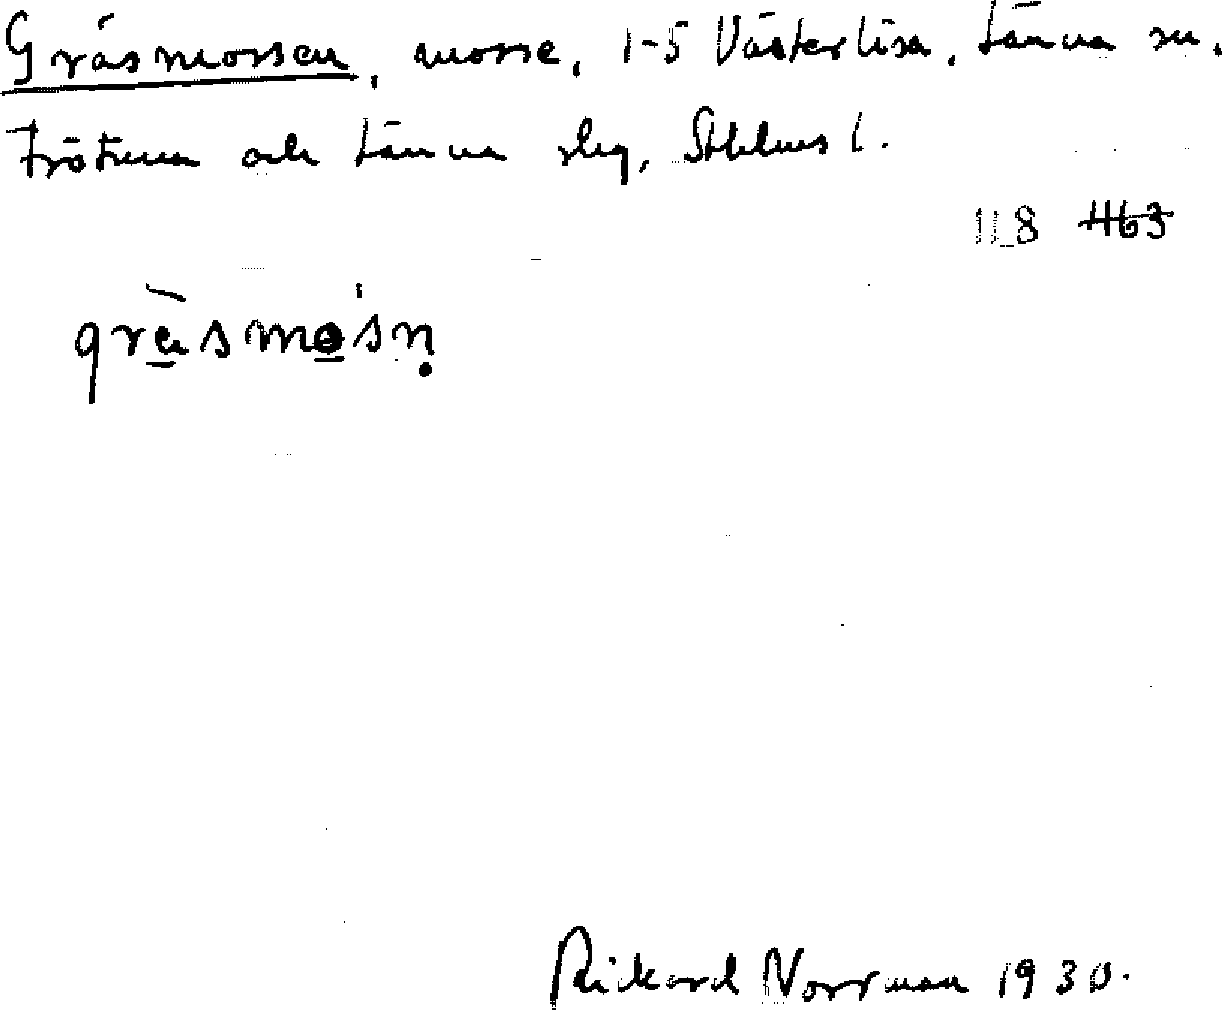 Gräsmossen, mosse, 1-5 Västerlisa, Länna sn.
Frötuna och Länna slg, Sthlms l.
118 463
gräsmosn
Rickard Norrman 1930.